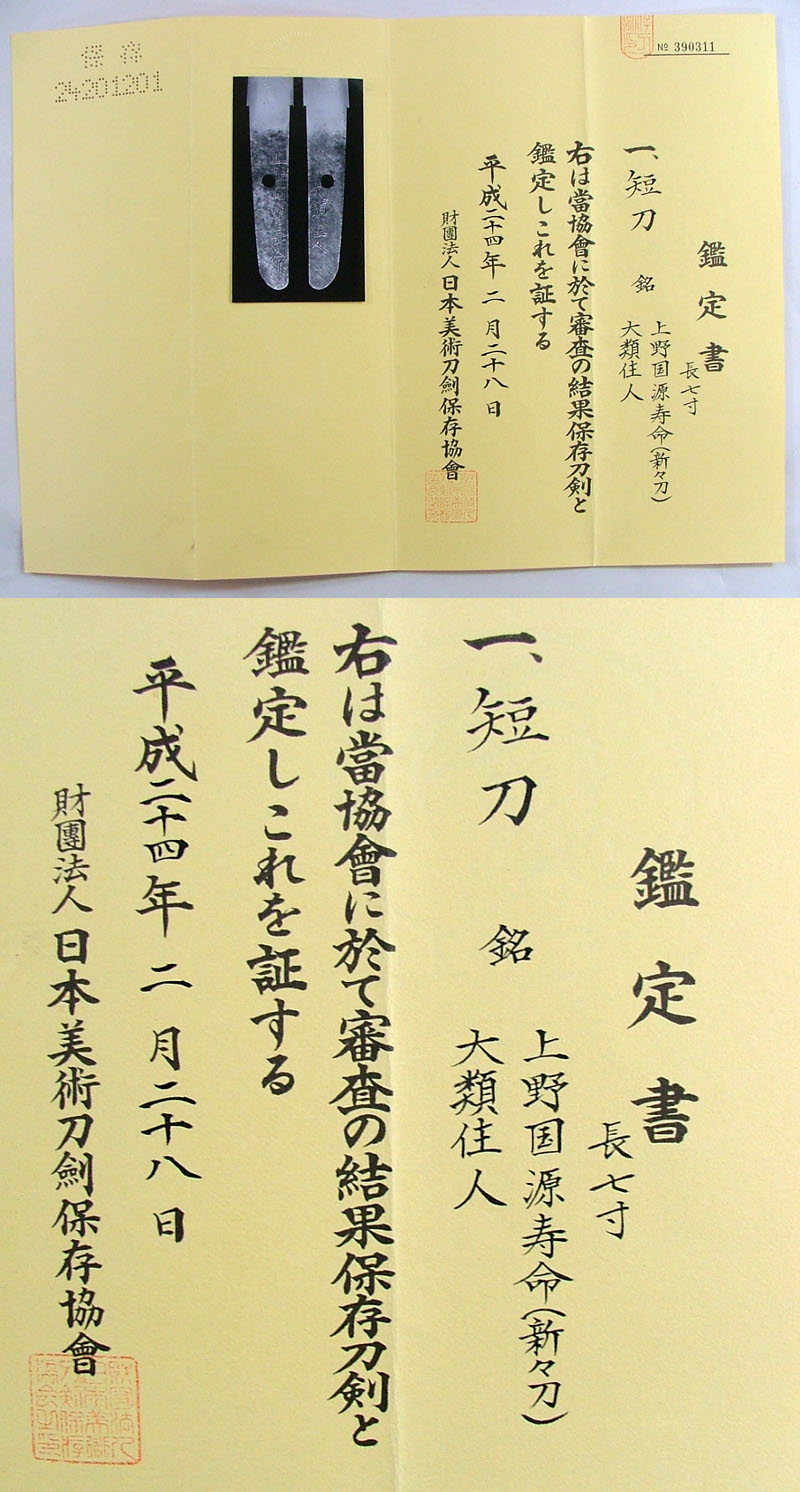 № 390311
鑑定書
長七寸
一、短刀 銘 上野国源寿命(新々刀)
大類住人
右は當協會に於て審査の結果保存刀剣と
鑑定しこれを証する
平成二十四年 二月二十八日
財團法人 日本美術刀劍保存協會
保存
24201201
鑑定書
長七寸
一、短刀 銘 上野国源寿命(新々刀)
大類住人
右は當協會に於て審査の結果保存刀剣と
鑑定しこれを証する
平成二十四年 二月二十八日
財團法人 日本美術刀劍保存協會